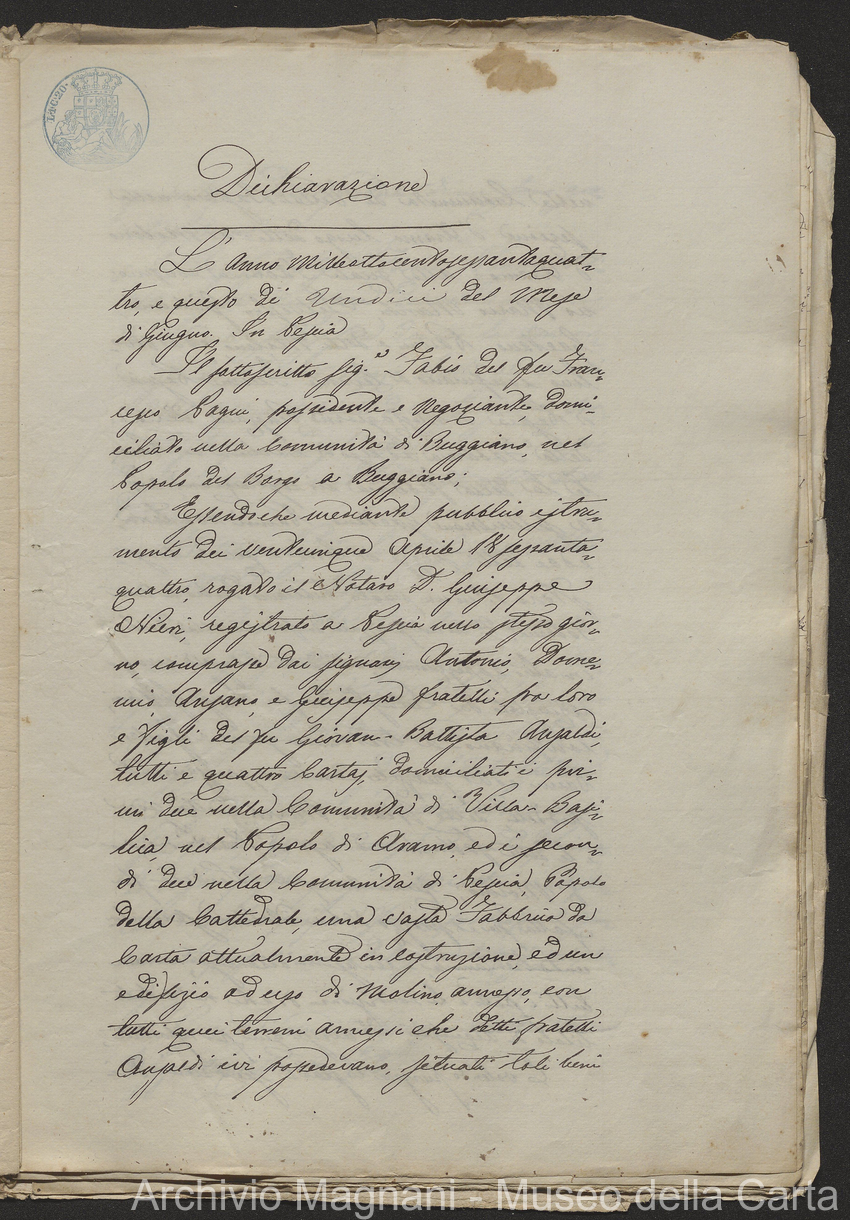 L.1.C.20.
Dichiarazione
L'anno Milleottocentosessantaquat-
tro, e questo dì Undici del Mese
di Giugno. In Pescia
Il sottoscritto Sig.e Fabio del fu Fran-
cesco Pagni, possidente e Negoziante, domi-
ciliato nella Comunità di Buggiano, nel
Popolo del Borgo a Buggiano;
Essendoche mediante pubblico istru-
mento dei venticinque Aprile 18sessanta-
quattro, rogato il Notaro D. Giuseppe
Neeri, registrato a Pescia nello stesso gior-
no, comprasse dai signori Antonio, Dome-
nico, Ansano, e Giuseppe fratelli fra loro
e Figli del fu Giovan-Battista Ansaldi,
tutti e quattro Cartaj, domiciliati i pri-
mi due nella Comunità di Villa-Basi-
lica, nel Popolo di Aramo, ed i secon-
di due nella Comunità di Pescia, Popolo
della Cattedrale, una vasta Fabbrica da
Carta attualmente in costruzione, ed un
edifizio ad uso di Molino annesso, con
tutti quei terreni annessi che detti fratelli
Ansaldi ivi possedevano, situati tali beni
Archivio Magnani - Museo della Carta